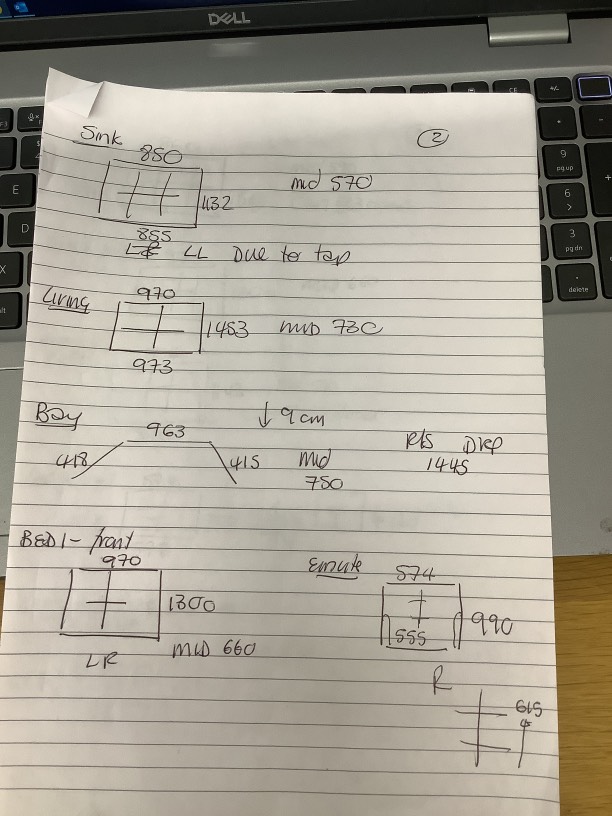 DELL
Sink
②
850
mid 570
432
855
LL Due to tap
Living
970
1453 MID 730
973
Bay
963
↓ 9cm
418
415
Mid
750
Drop
1445
BED 1 - front
970
1300
LR
MID 660
Ensuite
574
990
555
R
615